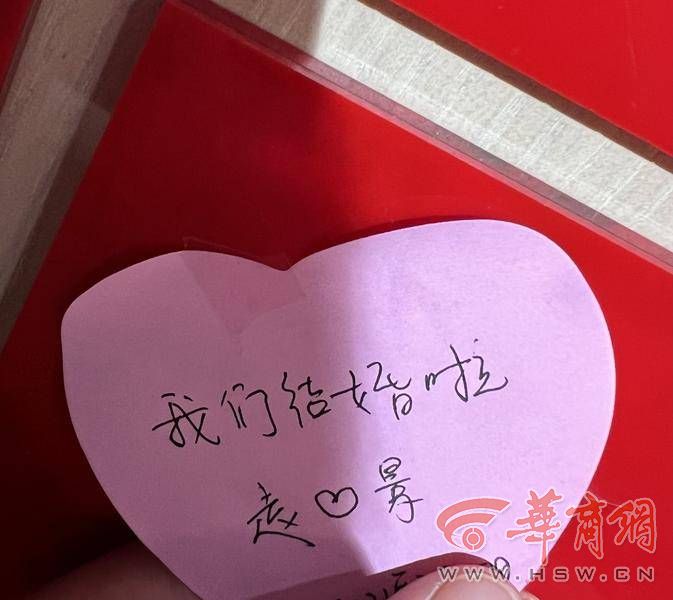 我们结婚啦
赵♡景
華商網
WWW.HSW.CN